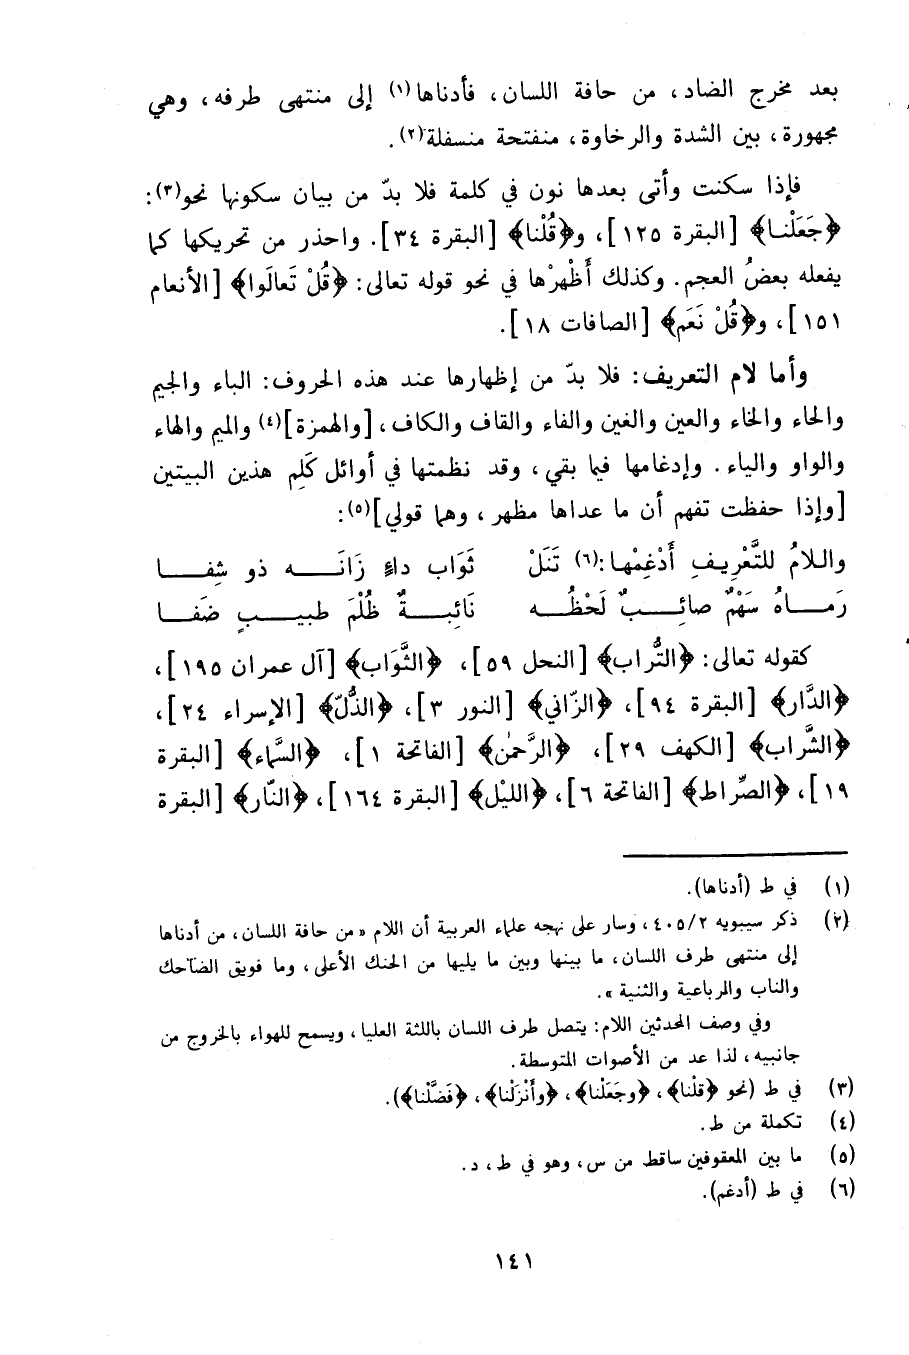 بعد مخرج الضاد، من حافة اللسان، فأدناها(١) إلى منتهى طرفه، وهي
مجهورة، بين الشدة والرخاوة، منفتحة منسفلة(٢).
فإذا سكنت وأتى بعدها نون في كلمة فلا بدّ من بيان سكونها نحو(٣):
﴿جَعَلْنا﴾ [البقرة ١٢٥]، و﴿قُلْنا﴾ [البقرة ٣٤]. واحذر من تحريكها كما
يفعله بعضُ العجم. وكذلك أَظْهِرْها في نحو قوله تعالى: ﴿قُلْ تَعالَوا﴾ [الأنعام
١٥١]، و﴿قُلْ نَعَم﴾ [الصافات ١٨].
وأما لام التعريف: فلا بدّ من إظهارها عند هذه الحروف: الباء والجيم
والحاء والخاء والعين والغين والفاء والقاف والكاف، [والهمزة](٤) والميم والهاء
والواو والياء. وإدغامها فيما بقي، وقد نظمتها في أوائل كَلِم هذين البيتين
[وإذا حفظت تفهم أن ما عداها مظهر، وهما قولي](٥):
واللامُ للتَّعْرِيفِ أَدْغِمْها:(٦) تَنَلْ ثَوَاب داءٍ زَانَـه ذو شِفـا
رَمـاهُ سَهْمٌ صائِـبٌ لَحْظُـه نَائِبـةٌ ظُلْمَ طبيـبٍ ضَفـا
كقوله تعالى: ﴿التُّراب﴾ [النحل ٥٩]، ﴿الثَّوَاب﴾ [آل عمران ١٩٥]،
﴿الدَّار﴾ [البقرة ٩٤]، ﴿الزّاني﴾ [النور ٣]، ﴿الذُّلّ﴾ [الإسراء ٢٤]،
﴿الشَّراب﴾ [الكهف ٢٩]، ﴿الرَّحمٰن﴾ [الفاتحة ١]، ﴿السَّماء﴾ [البقرة
١٩]، ﴿الصِّراط﴾ [الفاتحة ٦]، ﴿الليْل﴾ [البقرة ١٦٤]، ﴿النّار﴾ [البقرة
(١) في ط (أدناها).
(٢) ذكر سيبويه ٤٠٥/٢، وسار على نهجه علماء العربية أن اللام «من حافة اللسان، من أدناها
إلى منتهى طرف اللسان، ما بينها وبين ما يليها من الحنك الأعلى، وما فويق الضاحك
والناب والرباعية والثنية».
وفي وصف المحدثين اللام: يتصل طرف اللسان باللثة العليا، ويسمح للهواء بالخروج من
جانبيه، لذا عد من الأصوات المتوسطة.
(٣) في ط (نحو ﴿قلْنا﴾، ﴿وجَعَلْنا﴾، ﴿وأَنْزَلْنا﴾، ﴿فَضَّلْنا﴾).
(٤) تكملة من ط.
(٥) ما بين المعقوفين ساقط من س، وهو في ط، د.
(٦) في ط (أدغم).
١٤١